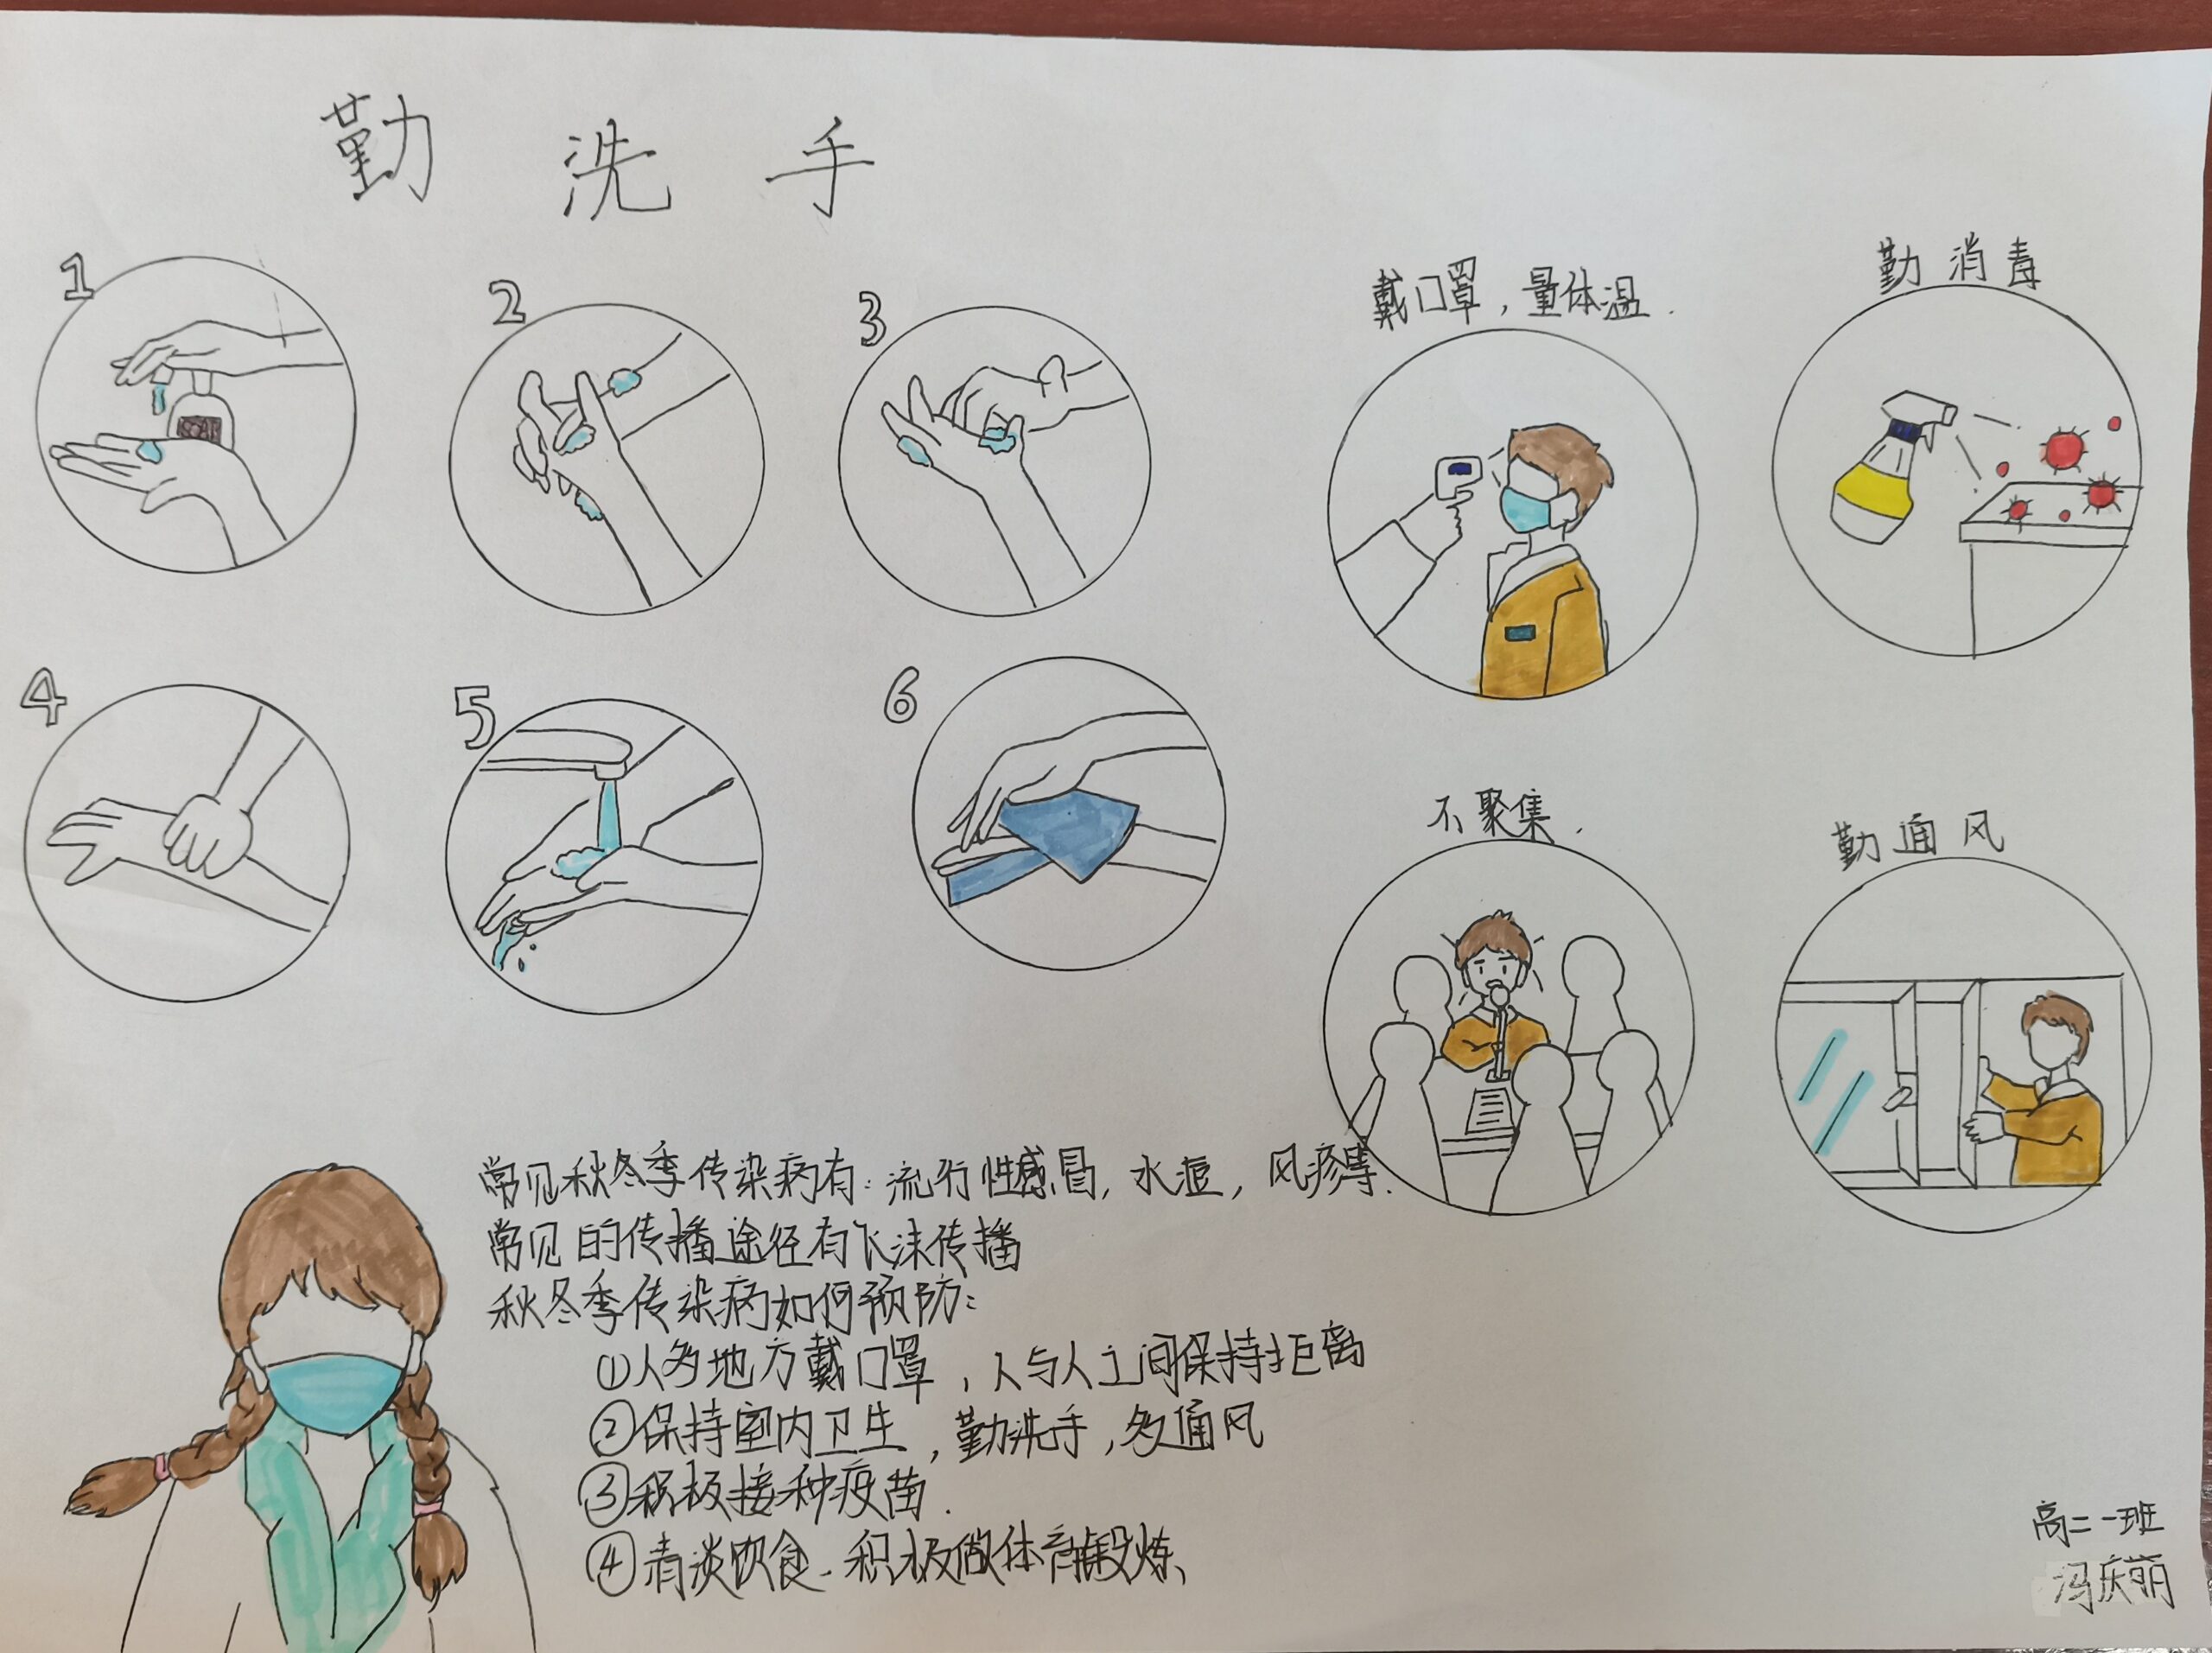 勤 洗 手
1
2
3
4
5
6
戴口罩，量体温.
勤 消 毒
不聚集.
勤 通 风
常见秋冬季传染病有：流行性感冒，水痘，风疹等.
常见的传播途径有飞沫传播
秋冬季传染病如何预防：
①人多地方戴口罩，人与人之间保持距离
②保持室内卫生，勤洗手，多通风
③积极接种疫苗.
④清淡饮食、积极做体育锻炼、
高二一班